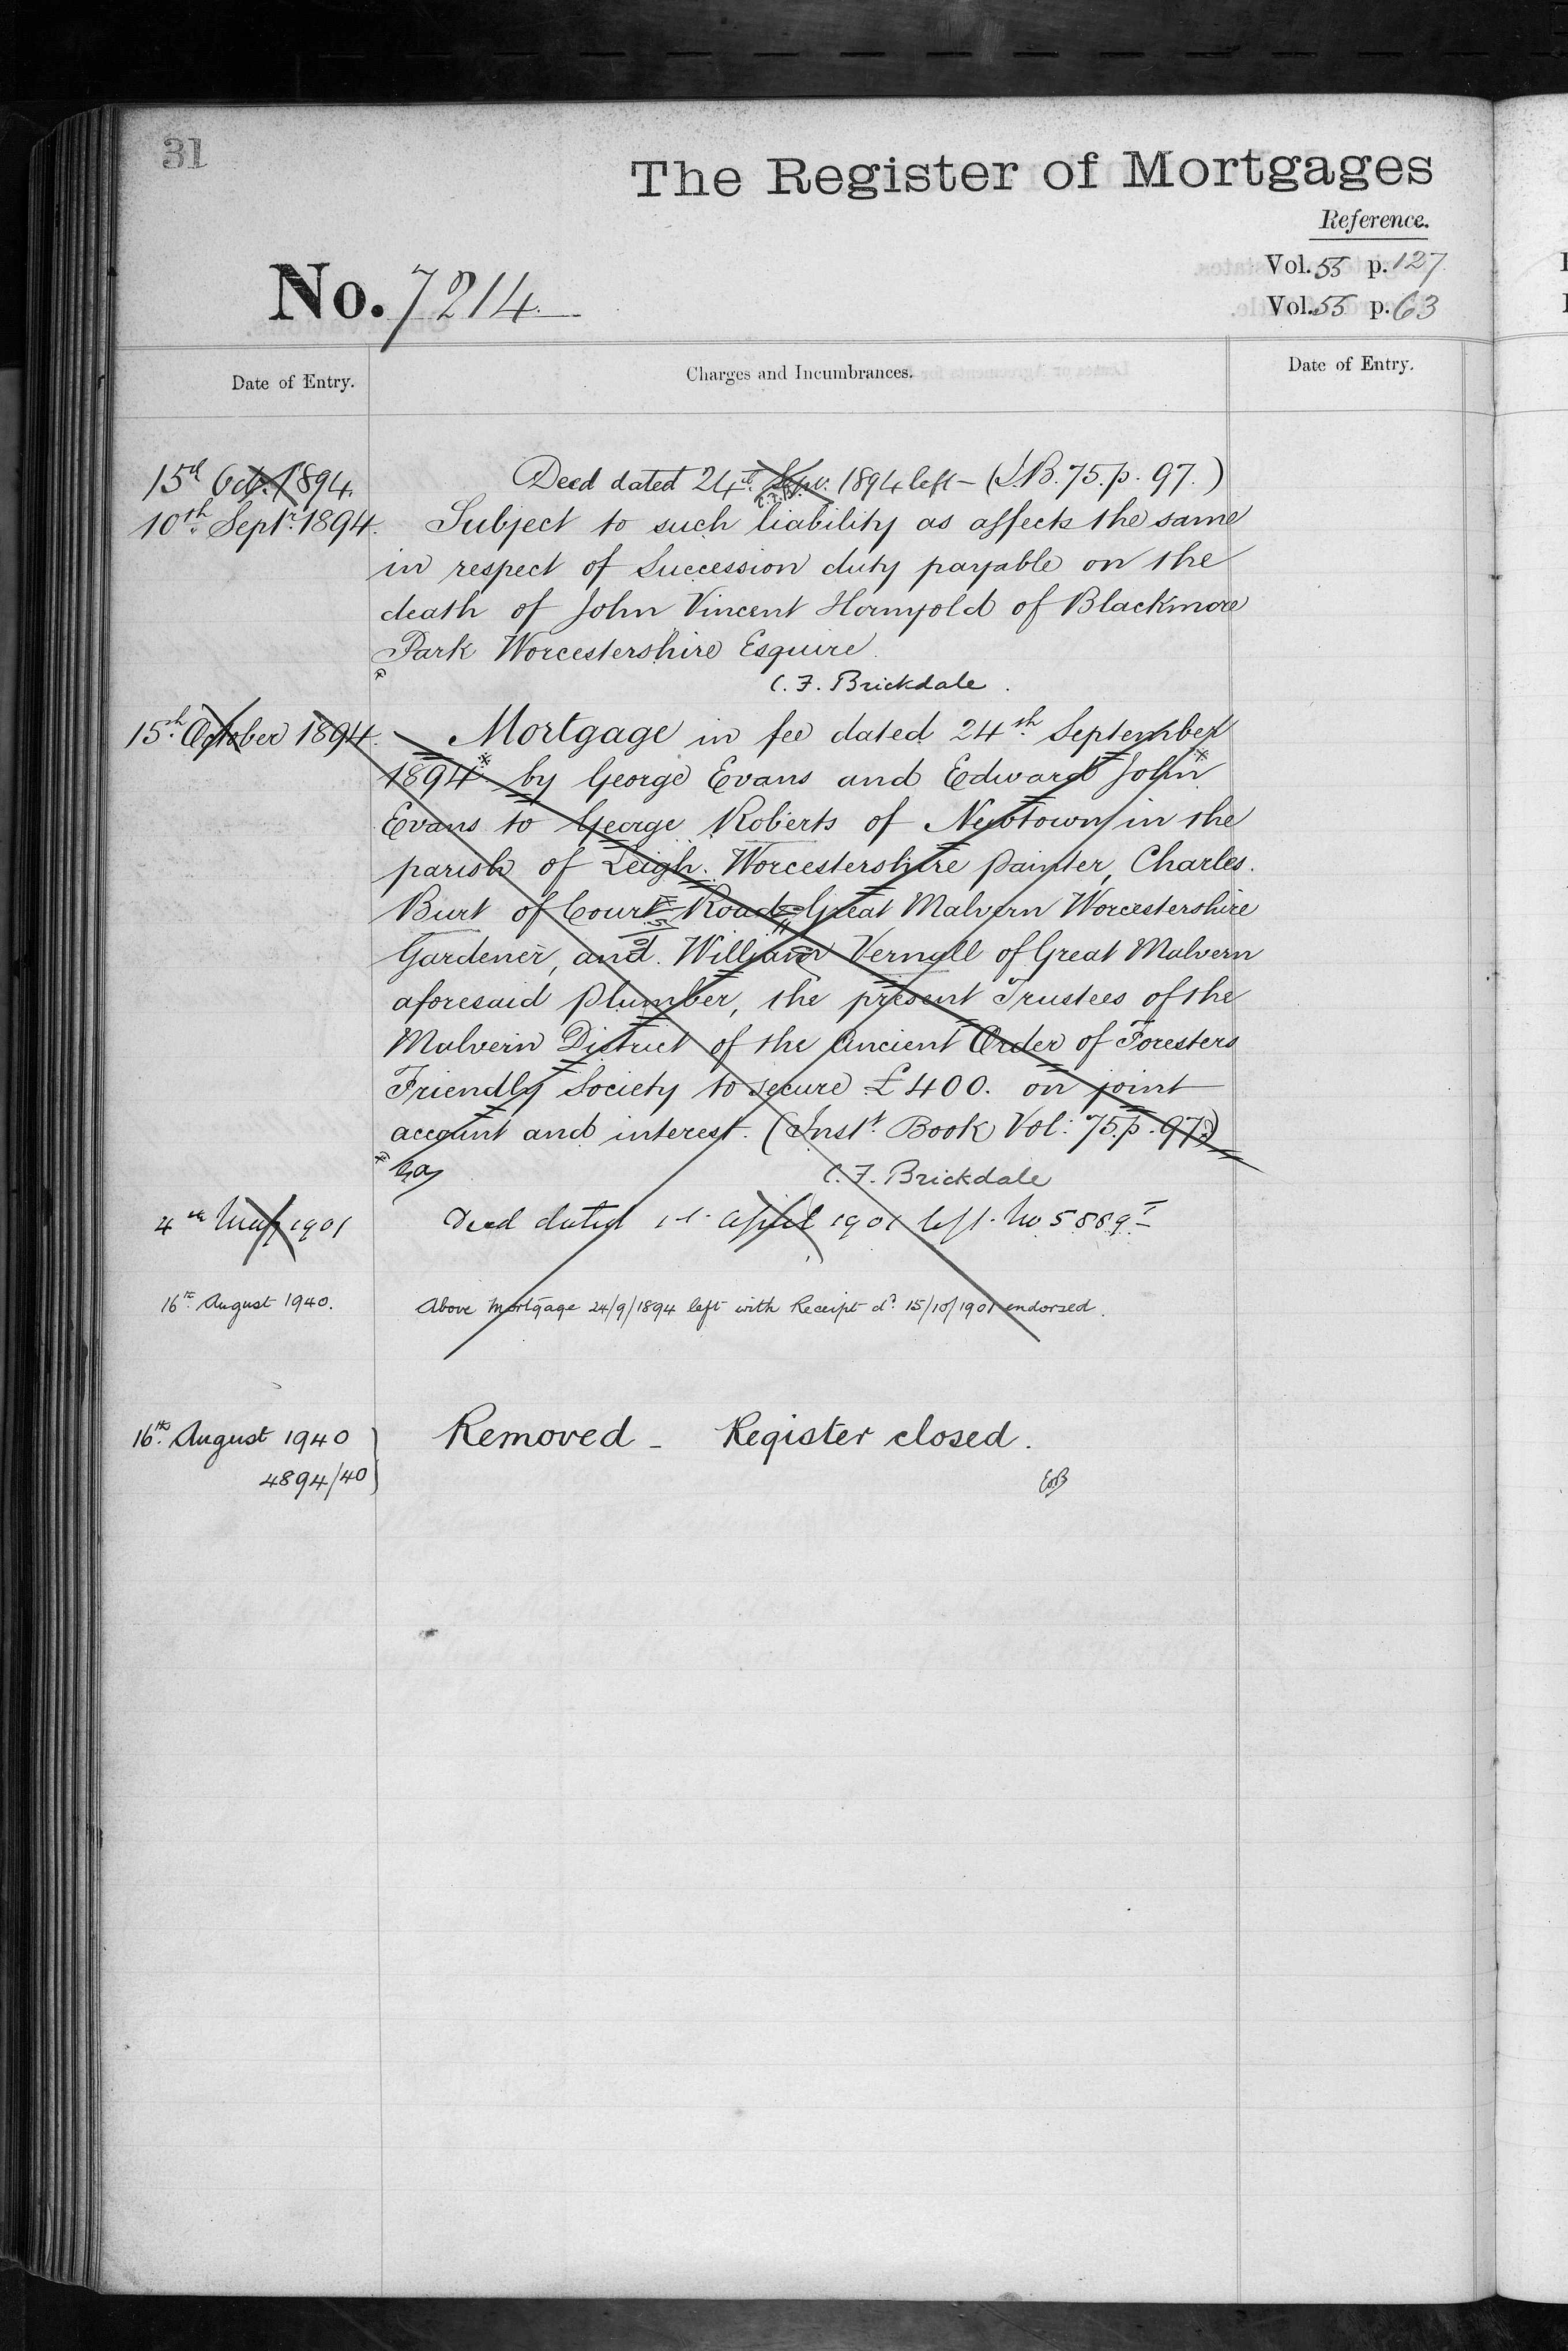 31
The Register of Mortgages
Reference.
No. 7214
Vol. 55 p. 127
Vol. 55 p. 63
Date of Entry. Charges and Incumbrances. Date of Entry.
15th Oct. 1894. Deed dated 24th Sep. 1894 left - (I.B. 75. p. 97.)
10th Septr. 1894. Subject to such liability as affects the same
in respect of Succession duty payable on the
death of John Vincent Hornyold of Blackmore
Park Worcestershire Esquire.
C. F. Brickdale.
15th October 1894. Mortgage in fee dated 24th September
1894* by George Evans and Edward John*
Evans to George Roberts of Newtown in the
parish of Leigh. Worcestershire painter, Charles.
Burt of Court Road Great Malvern Worcestershire
Gardener, and. William Vernall of Great Malvern
aforesaid Plumber, the present Trustees of the
Malvern District of the Ancient Order of Foresters
Friendly Society to secure £400. on joint
account and interest. (Instt. Book Vol: 75. p. 97.)
C. F. Brickdale
4th May 1901 Deed dated 1st April 1901 left. No 5889 I
16th August 1940. Above Mortgage 24/9/1894 left with Receipt dd. 15/10/1901 endorsed.
16th August 1940 Removed - Register closed.
4894/40